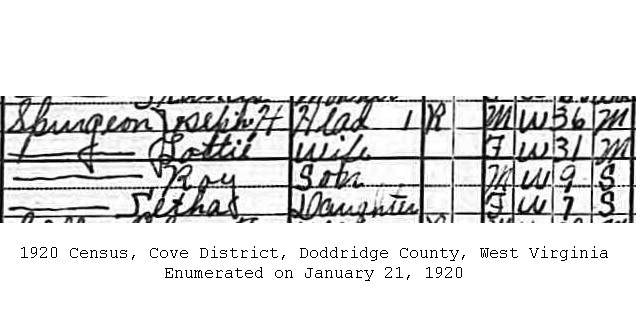 Spurgeon Joseph H Head 1 R M W 36 M
Lottie Wife F W 31 M
Roy Son M W 9 S
Daughter F W 7 S
1920 Census, Cove District, Doddridge County, West Virginia
Enumerated on January 21, 1920